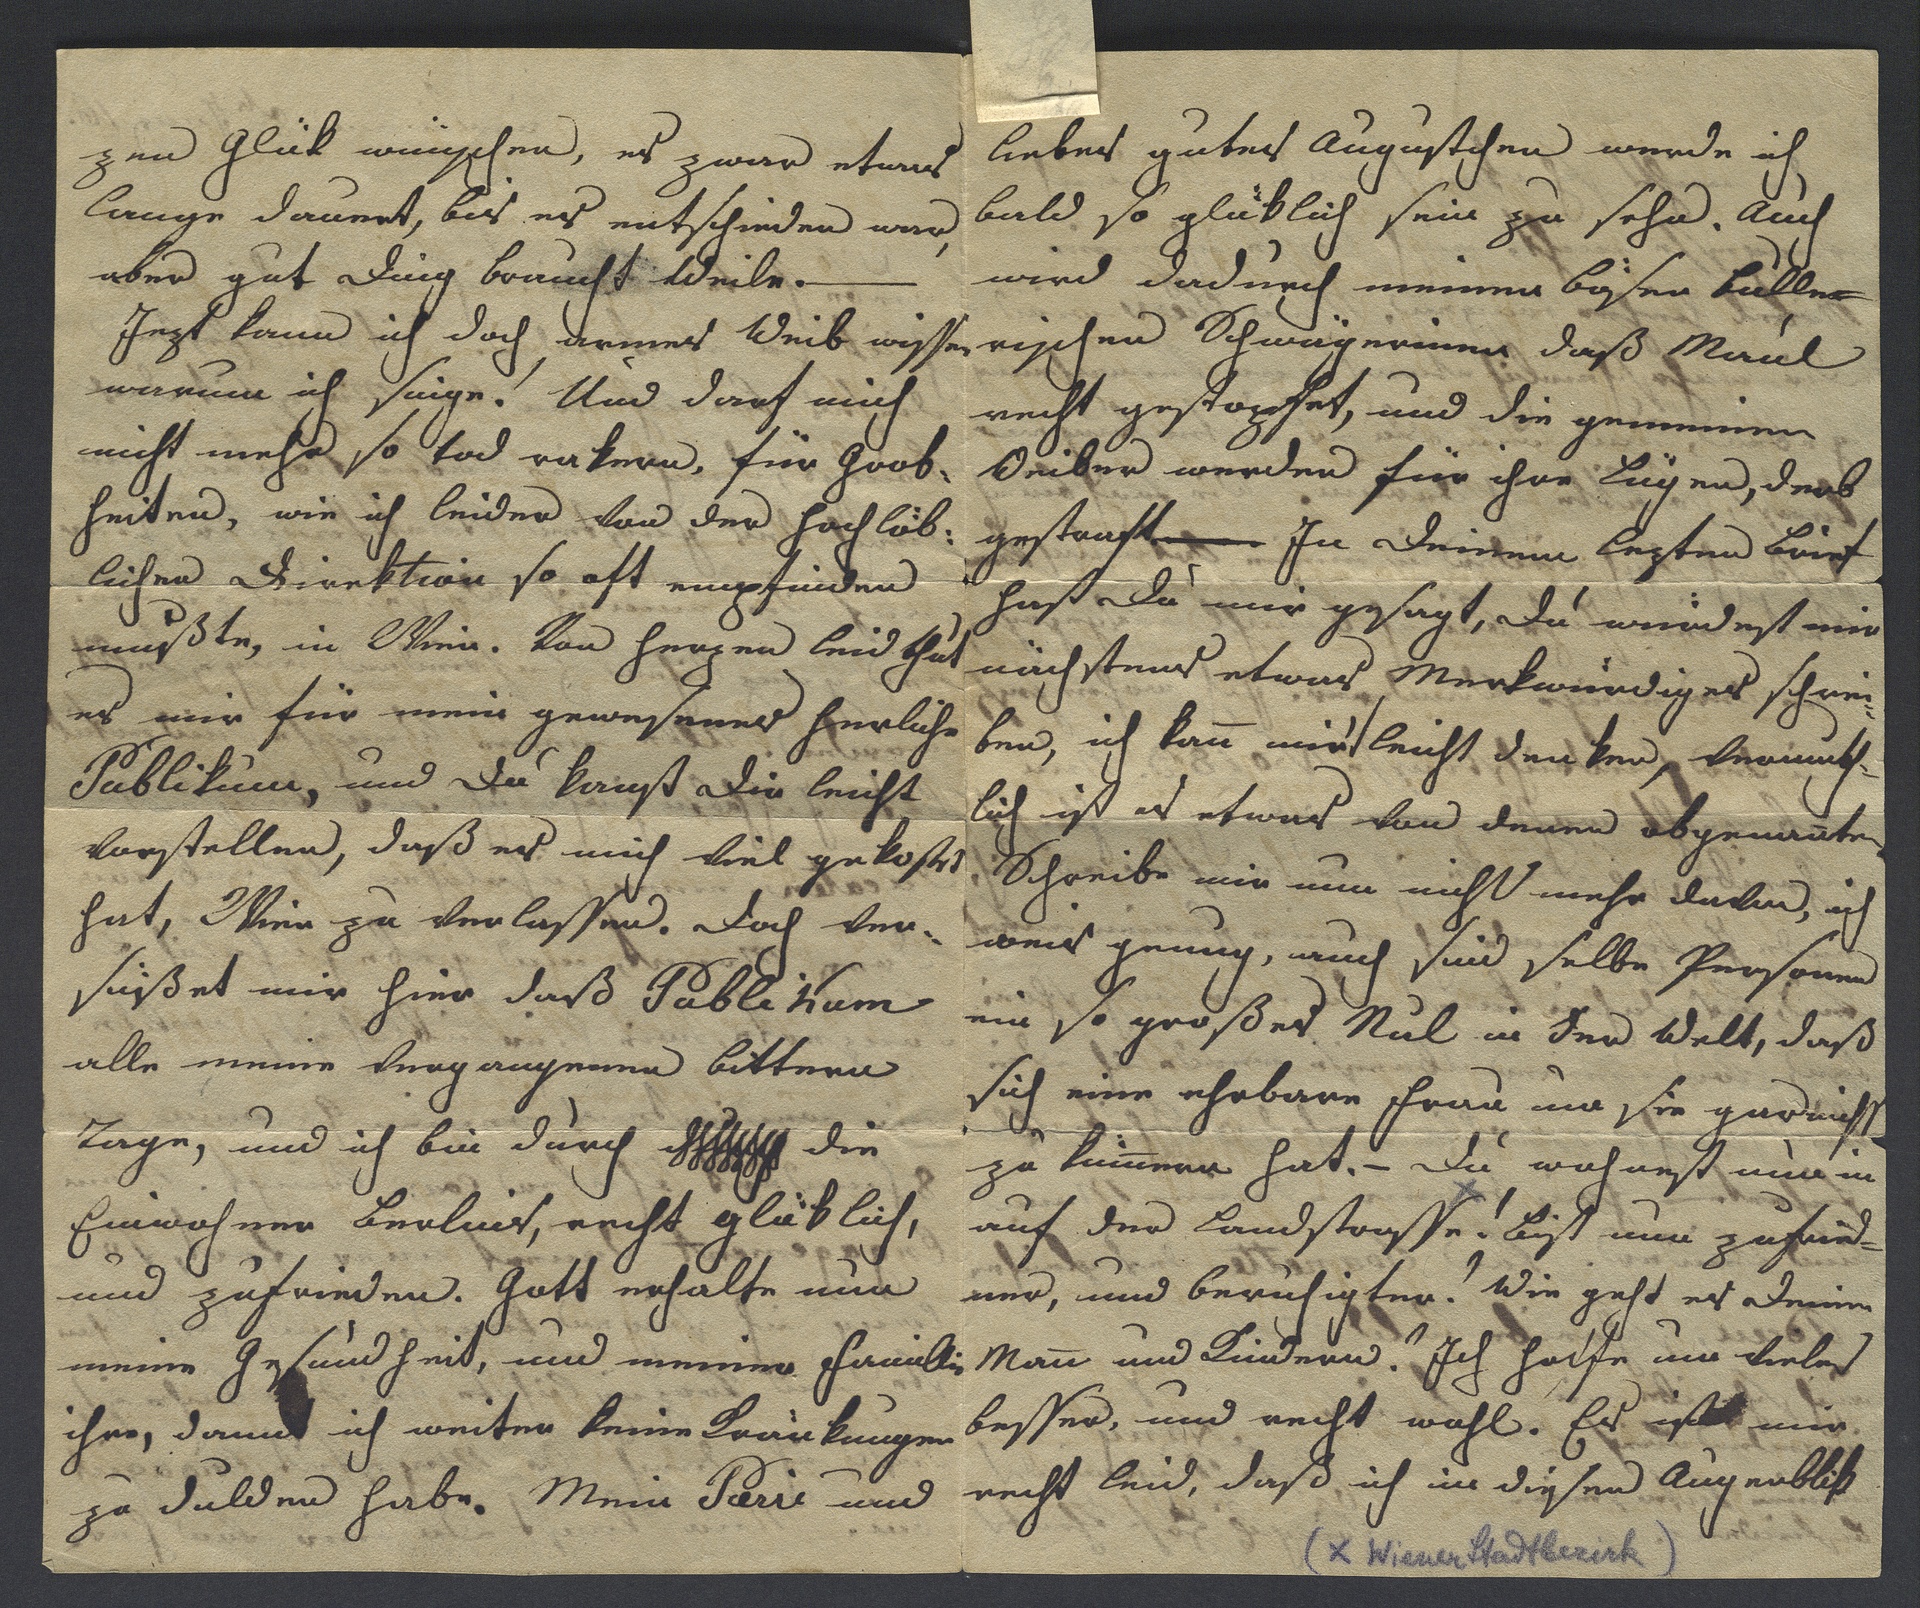 zen Glük wünschen, es zwar etwas
lange dauert, bis es entschieden war,
aber gut Ding braucht Weile.—
Jezt kann ich doch armes Weib wissen
warum ich singe! Und darf mich
nicht mehr so tod rakern, für Grob-
heiten, wie ich leider von der hochlöb-
lichen Direktion so oft empfinden
mußte, in Wien. Von Herzen leid thut
es mir für mein gewesenes herliche
Publikum, und Du kanst Dir leicht
vorstellen, daß es mich viel gekostet
hat, Wien zu verlassen. Doch ver-
süßet mir hier daß Publikum
alle meine vergangenen bittern
Tage, und ich bin durch die
Einwohner Berlins, recht glüklich,
und zufrieden. Gott erhalte nur
meine Gesundheit, und meiner Familie
ihre, damit ich weiter keine Kränkungen
zu dulden habe. Mein und
liebes gutes Augustchen werde ich
bald so glüklich sein zu sehn. Auch
wird dadurch meinen bösen
rischen Schwägerinen daß Maul
recht gestopfet, und die gemeinen
Weiber werden für ihre Lügen, derb
gestraft— In Deinem lezten Brief
hast Du mir gesagt, Du würdest mir
nächstens etwas Merkwürdiges schrei-
ben, ich kan̄ mir leicht denken, vermuth-
lich ist es etwas von denen obgenan̄ten
Schreibe mir nun nicht mehr davon, ich
weis genug, auch sind selbe Personen
ein so großes Nul in der Welt, daß
sich eine ehrbare Frau um sie gar nicht
zu küm̄ern hat.— Du wohnest nun in
auf der Landstrasse x! Bist nun zufried-
ner, und beruhigter? Wie geht es Deinen
Man̄ und Kindern? Ich hoffe um vieles
besser, und recht wohl. Es ist mir
recht leid, daß ich in diesen Augenblik
(x Wiener Stadtbezirk)